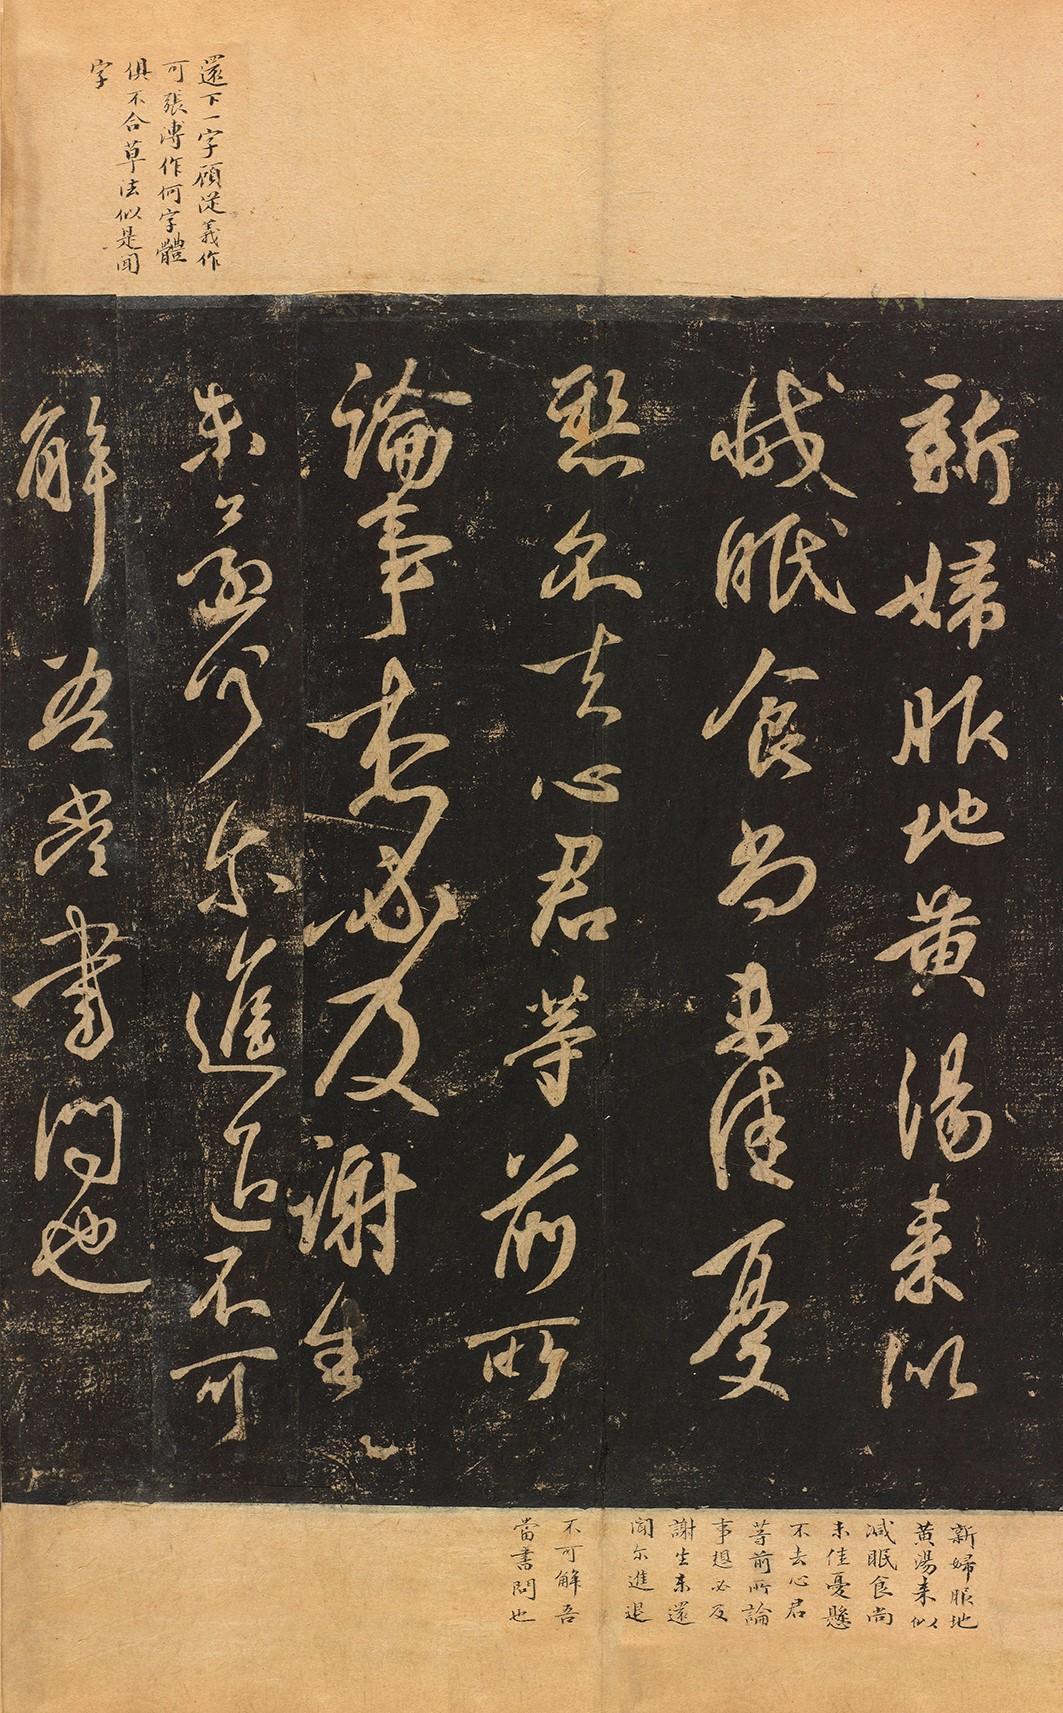 還下一字顧從義作
可張溥作何字體
俱不合草法似是聞
字
新婦服地黃湯来似
減眠食尚未佳憂
懸不去心君等前所
論事想必及謝生
未還何尔進退不可
解吾當書問也
新婦服地
黃湯来似
減眠食尚
未佳憂懸
不去心君
等前所論
事想必及
謝生未還
聞尔進退
不可解吾
當書問也